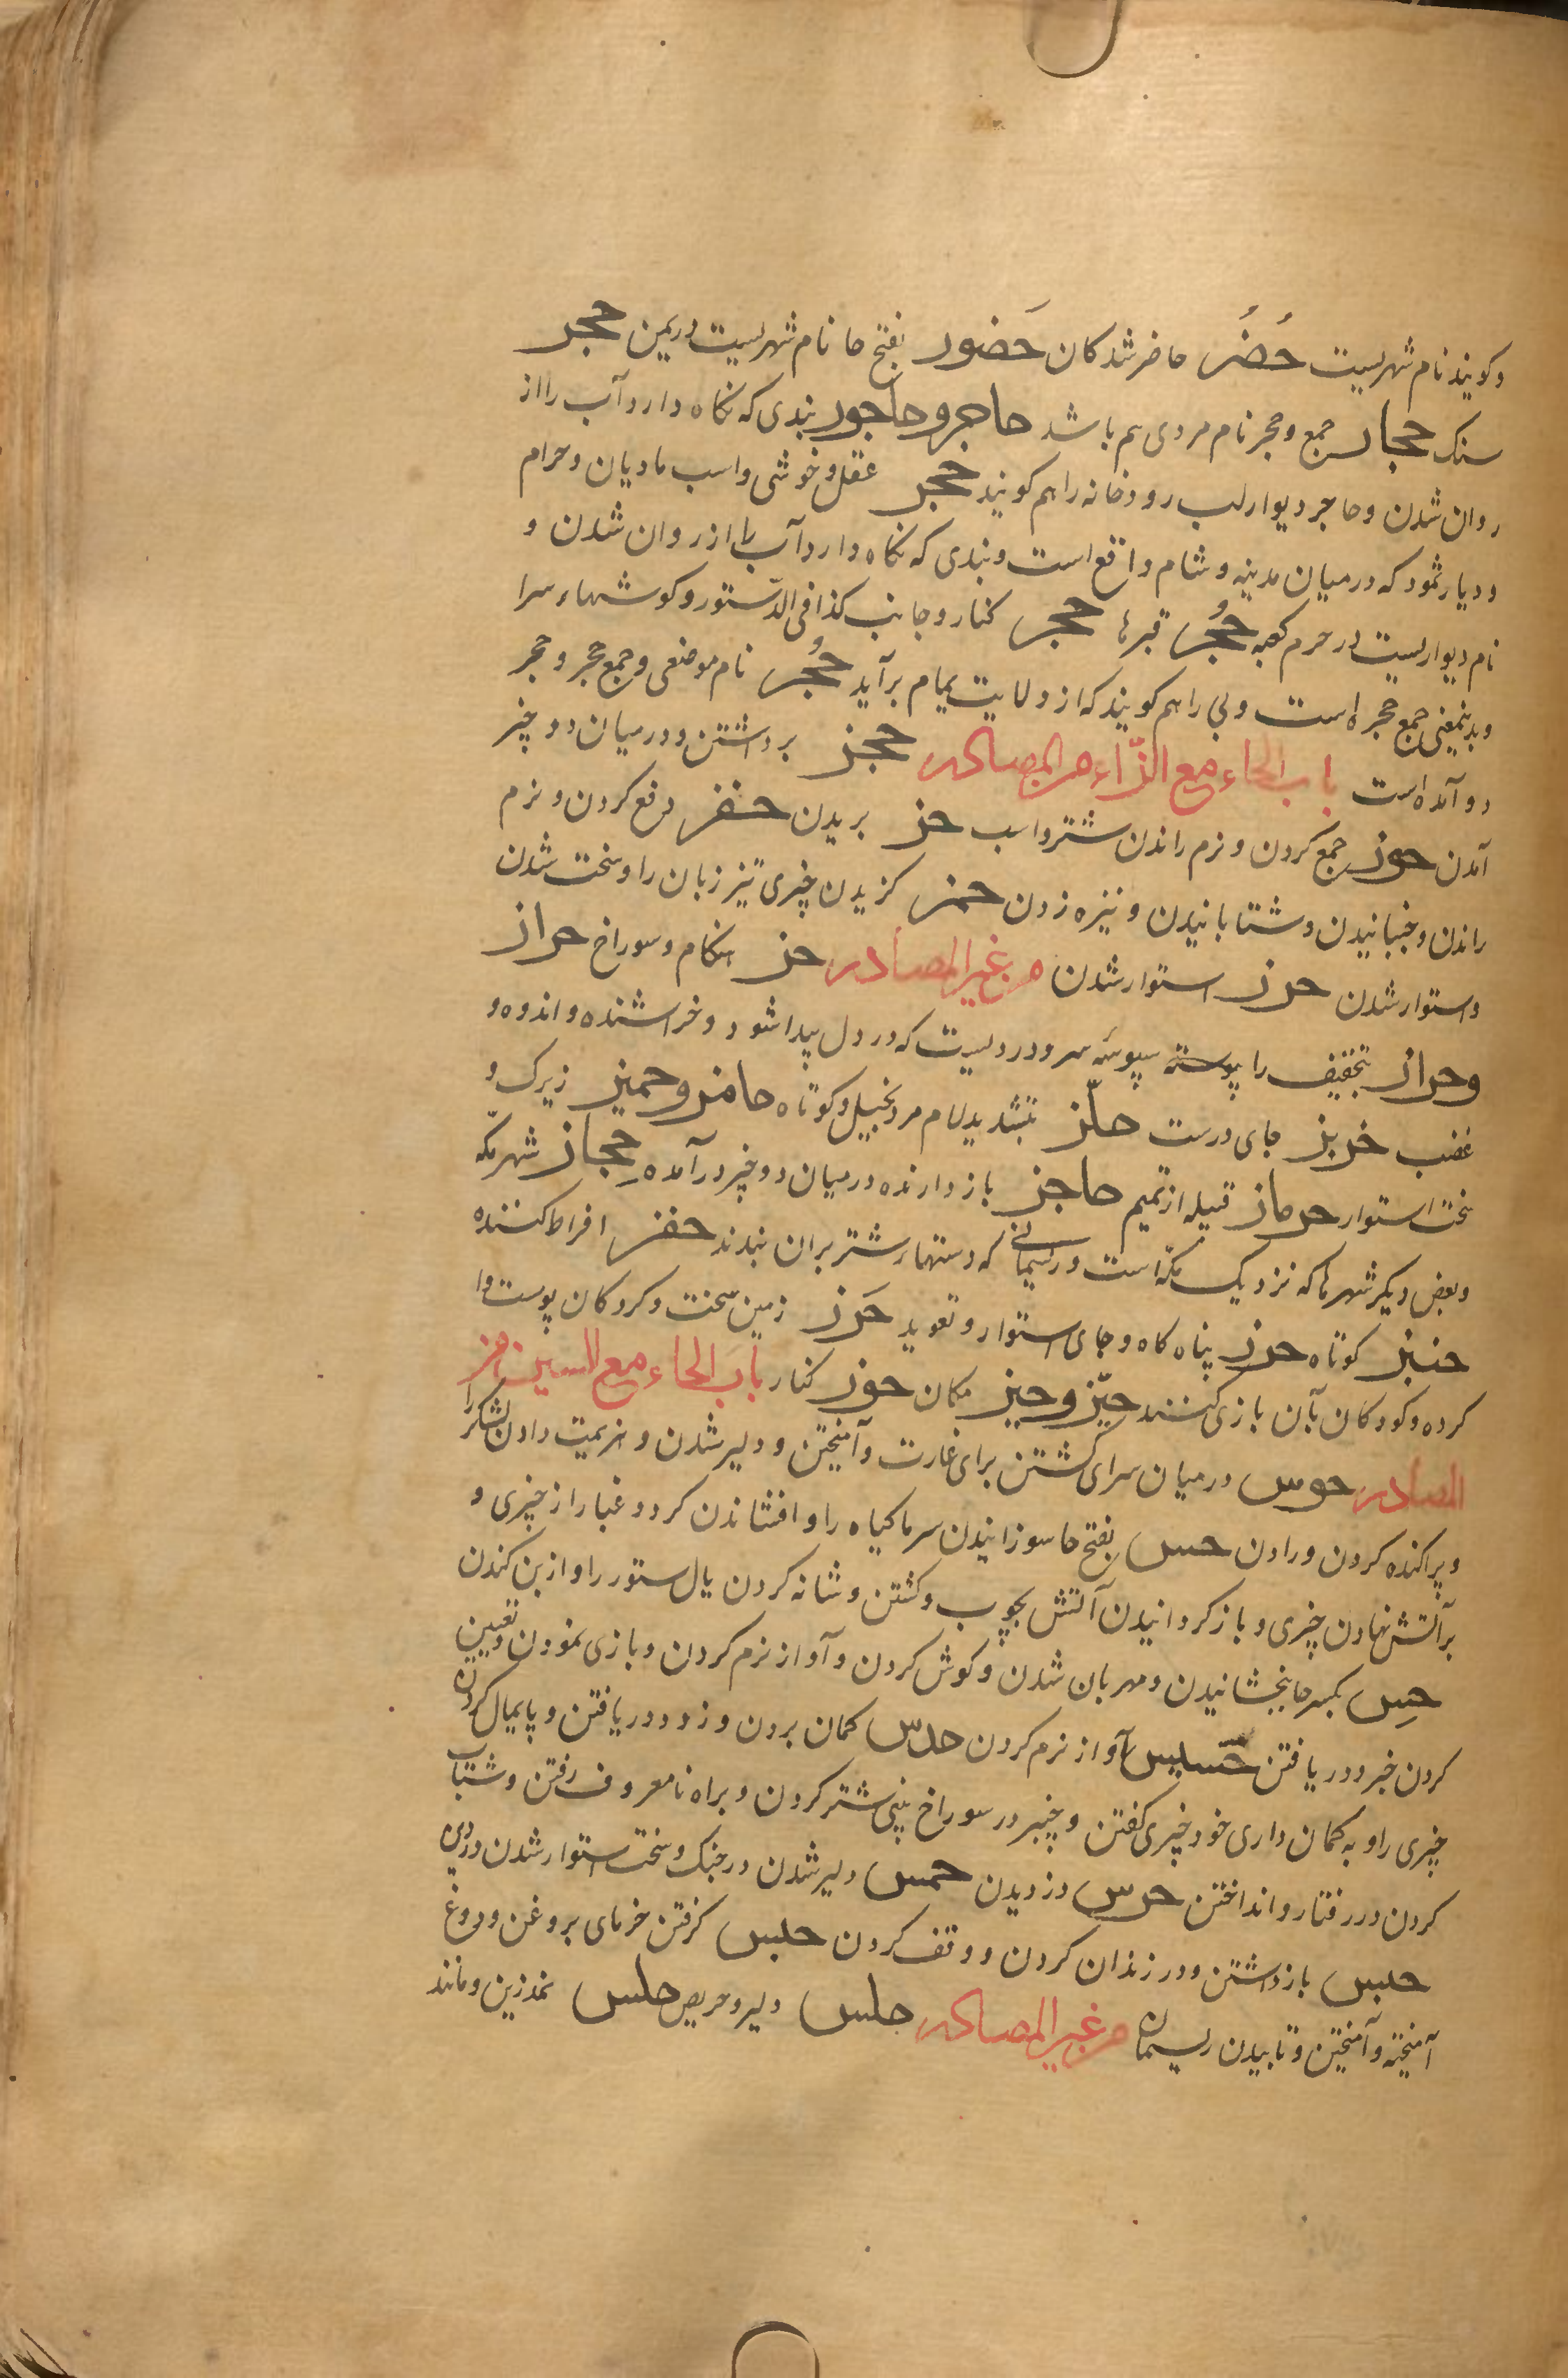 وکویند نام شهریست حُضُر حاضر شدکان حَضور بفتح حا نام شهریست در یمن حجر
سنک حجار جمع و حجر نام مردی هم باشد حاجر و حاجور بندی که نکاه دارد آب را از
روان شدن و حاجر دیوار لب رودخانه را هم کویند حجر عقل و خوشی و اسب مادیان و حرام
و دیار ثمود که در میان مدینه و شام واقع است و بندی که نکاه دارد آب را از روان شدن و
نام دیواریست در حرم کعبه حُجُر قبرها حجر کنار و جانب کذا فی الدستور و کوشهاء سرا
و بدینمعنی جمع حجره است و بی را هم کویند که از ولایت یمام برآید حُجُر نام موضعی و جمع حجر و حجر
دو آمده است باب الحاء مع الزّاء من المصادر حجز برداشتن و در میان دو چیز
آمدن حوز جمع کردن و نرم راندن شتر و اسب حز بریدن حفز دفع کردن و نرم
راندن و جنبانیدن و شتابانیدن و نیزه زدن حمز کزیدن چیزی تیز زبان را و سخت شدن
و استوار شدن حرز استوار شدن من غیر المصادر حز هنکام و سوراخ حراز
و حزاز بتخفیف را پوسته سپوسه سر و دردیست که در دل پیدا شود و خراشنده و اندوه و
غضب حریز جای درست حلّز بتشدید لام مرد بخیل و کوتاه حامز و حمیز زیرک و
سخت استوار حرماز قبیله از تمیم حاجز بازدارنده در میان دو چیز درآمده حجاز شهر مکّه
و بعض دیکر شهرها که نزدیک مکّه است و ریسمانی که دستهاء شتر بران بندند حفز افراط کننده
حنبز کوتاه حرز پناه کاه و جای استوار و تعوید حَرَز زمین سخت و کردکان پوست وا
کرده و کودکان بآن بازی کنند حیّز و حیز مکان حوز کنار باب الحاء مع السین من
المصادر حوس در میان سرای کشتن برای غارت و آمیختن و دلیر شدن و هزیمت دادن لشکر را
و پراکنده کردن و رادن حس بفتح حا سوزانیدن سرما کیاه را و افشاندن کرد و غبار از چیزی و
برآتش نهادن چیزی و باز کردانیدن آتش بچوب و کشتن و شانه کردن یال ستور را و از بن کندن
حِس بکسر حا بخشانیدن و مهربان شدن و کوش کردن و آواز نرم کردن و بازی نمودن و تعیین
کردن خبر و دریافتن حسیس آواز نرم کردن حدس کمان بردن و زود دریافتن و پایمال کردن
چیزی را و به کمان داری خود چیزی کفتن و چنبر در سوراخ بینی شتر کردن و براه نامعروف رفتن و شتاب
کردن در رفتار و انداختن حرس دزدیدن حمس دلیر شدن در جنک و سخت استوار شدن در دین
حبس بازداشتن و در زندان کردن و وقف کردن حیس کرفتن خرمای بروغن و دوغ
آمیخته و آمیختن و تابیدن ریسمان من غیر المصادر حلس دلیر و حریص حلس نمد زین و مانند